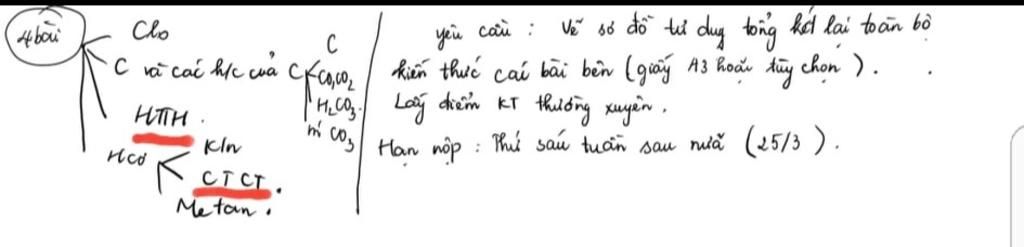 4 bài
Clo
C và các h/c của C
C
CO, CO2
H2CO3
m' CO3
HTTH.
Hcơ
KIn
CTCT.
Metan.
yêu cầu : Vẽ sơ đồ tư duy tổng kết lại toàn bộ
kiến thức các bài bên (giấy A3 hoặc tùy chọn).
Lấy điểm KT thường xuyên.
Hạn nộp : Thứ sáu tuần sau nữa (25/3).